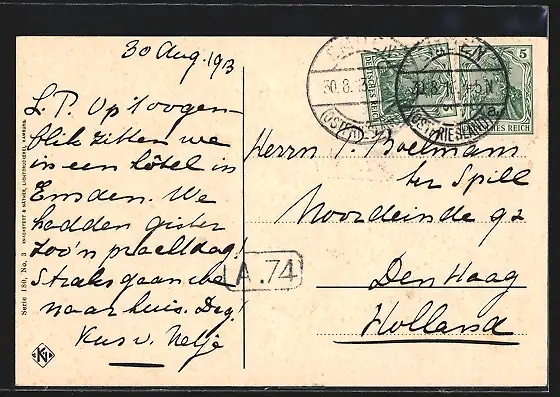 30 Aug. 1913
L. P. Op 't oogen-
blik zitten we
in een hôtel in
Emden. We
hadden gister
zoo'n prachtdag!
Straks gaan we
naar huis. Dag!
Kus v. Nelje
Serie 180, No. 3 KNACKSTEDT & NÄTHER, LICHTDRUCKEREI, HAMBURG.
EMDEN
30.8.13
(OSTFRIESLAND)
DEUTSCHES REICH
5
DEUTSCHES REICH
Herrn P. Boelmans
ter Spill
Noordeinde 92
Den Haag
Holland
LA.74